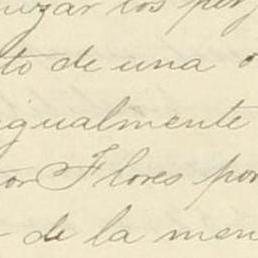 los
to de una
igualmente
or Flores por
de la men